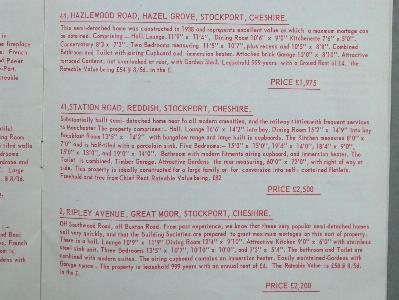 44, HAZLEWOOD ROAD, HAZEL GROVE, STOCKPORT, CHESHIRE.
This semi-detached home was constructed in 1938 and represents excellent value on which a maximum mortgage can
be obtained. Comprising :- Hall. Lounge 11'9" x 11'4". Dining Room 10'6" x 9'0" Kitchenette 7'6" x 5'0".
Conservatory 8'3 x 7'3". Two Bedrooms measuring 11'5" x 10'7", plus recess and 10'5" x 8'8". Combined
Bathroom and Toilet with airing Cupboard and immersion heater. Attached brick Garage 15'0" x 8'10". Attractive
terraced Gardens, not overlooked at rear, with Garden Shed. Leasehold 999 years with a Ground Rent of £4. the
Rateable Value being £54 8 8/8d. in the £.
PRICE £1,975
41, STATION ROAD, REDDISH, STOCKPORT, CHESHIRE.
Substantially built semi-detached home near to all modern amenities, and the railway station with frequent services
to Manchester The property comprises - Hall. Lounge 16'6" x 14'2" into bay. Dining Room 15'2" x 14'9" into bay
Breakfast Room 13'5" x 14'2" with bungalow range and large built in cupboards. The Kitchen measures 8'0" x
7'0" and is half-tiled with a porcelain sink. Five Bedrooms:- 15'0" x 15'0", 19'6" x 14'0", 18'4" x 9'0",
15'0" x 13'0", and 19'0" x 14'0". Bathroom with modern fitments airing cupboard, and immersion heater. The
Toilet is combined. Timber Garage. Attractive Gardens the rear measuring, 60'0" x 72'0", with right of way at
side. This property is ideally constructed for a large family or for conversion into self-contained flatlets.
Freehold and free from Chief Rent. Rateable Value being, £82
PRICE £2,500
2, RIPLEY AVENUE, GREAT MOOR, STOCKPORT, CHESHIRE.
Off Southwood Road, off Buxton Road. From past experience, we know that these very popular semi-detached homes
sell very quickly, and that the Building Societies are prepared to grant maximum mortgages on this sort of property.
There is a hall. Lounge 12'9" x 11'9" Dining Room 12'4" x 9'10". Attractive Kitchen 9'0" x 6'0" with stainless
steel sink unit. Three Bedrooms 13'5" x 10'7", 10'10" x 10'0", and 7'5" x 5'4". The bathroom and Toilet are
combined with modern suites. The airing cupboard contains an immersion heater. Easily maintained Gardens with
Garage space. The property is leasehold 999 years with an annual rent of £4. The Rateable Value is £58 8 8/8d.
in the £.
PRICE £2,200